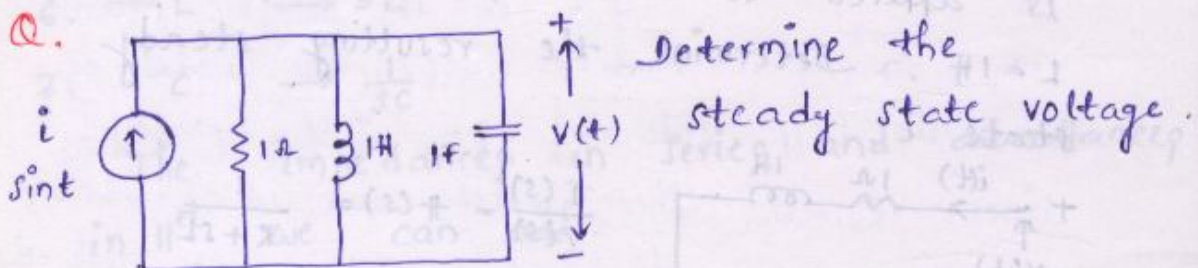 Q.
i
sint
1Ω
1H
1f
+
V(t)
−
Determine the
steady state voltage.